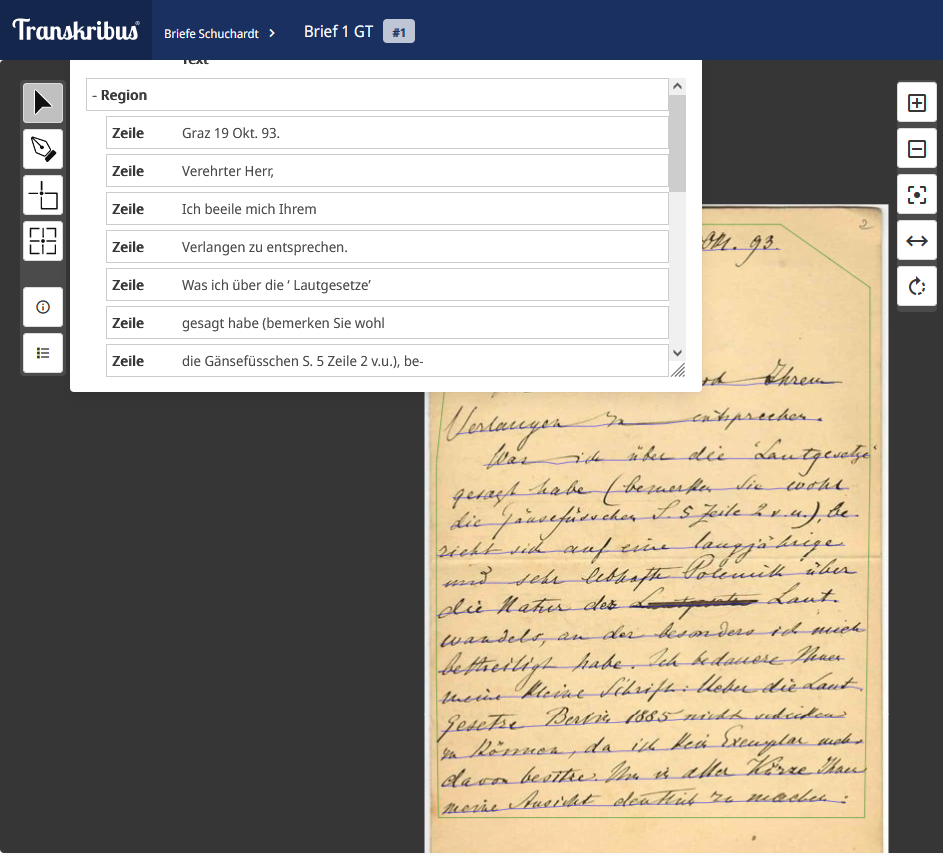 Transkribus®
Briefe Schuchardt > Brief 1 GT #1
Text
- Region
Zeile Graz 19 Okt. 93.
Zeile Verehrter Herr,
Zeile Ich beeile mich Ihrem
Zeile Verlangen zu entsprechen.
Zeile Was ich über die ‘ Lautgesetze’
Zeile gesagt habe (bemerken Sie wohl
Zeile die Gänsefüsschen S. 5 Zeile 2 v.u.), be-
2
Okt. 93.
Ihrem
Verlangen zu entsprechen.
Was ich über die ‘Lautgesetze’
gesagt habe (bemerken Sie wohl
die Gänsefüsschen S. 5 Zeile 2 v.u.), be-
zieht sich auf eine langjährige
und sehr lebhafte Polemik über
die Natur des Laut-
wandels, an der besonders ich mich
betheiligt habe. Ich bedauere Ihnen
meine kleine Schrift: Ueber die Laut-
gesetze Berlin 1885 nicht schicken
zu können, da ich kein Exemplar mehr
davon besitze. Um in aller Kürze Ihnen
meine Ansicht deutlich zu machen: